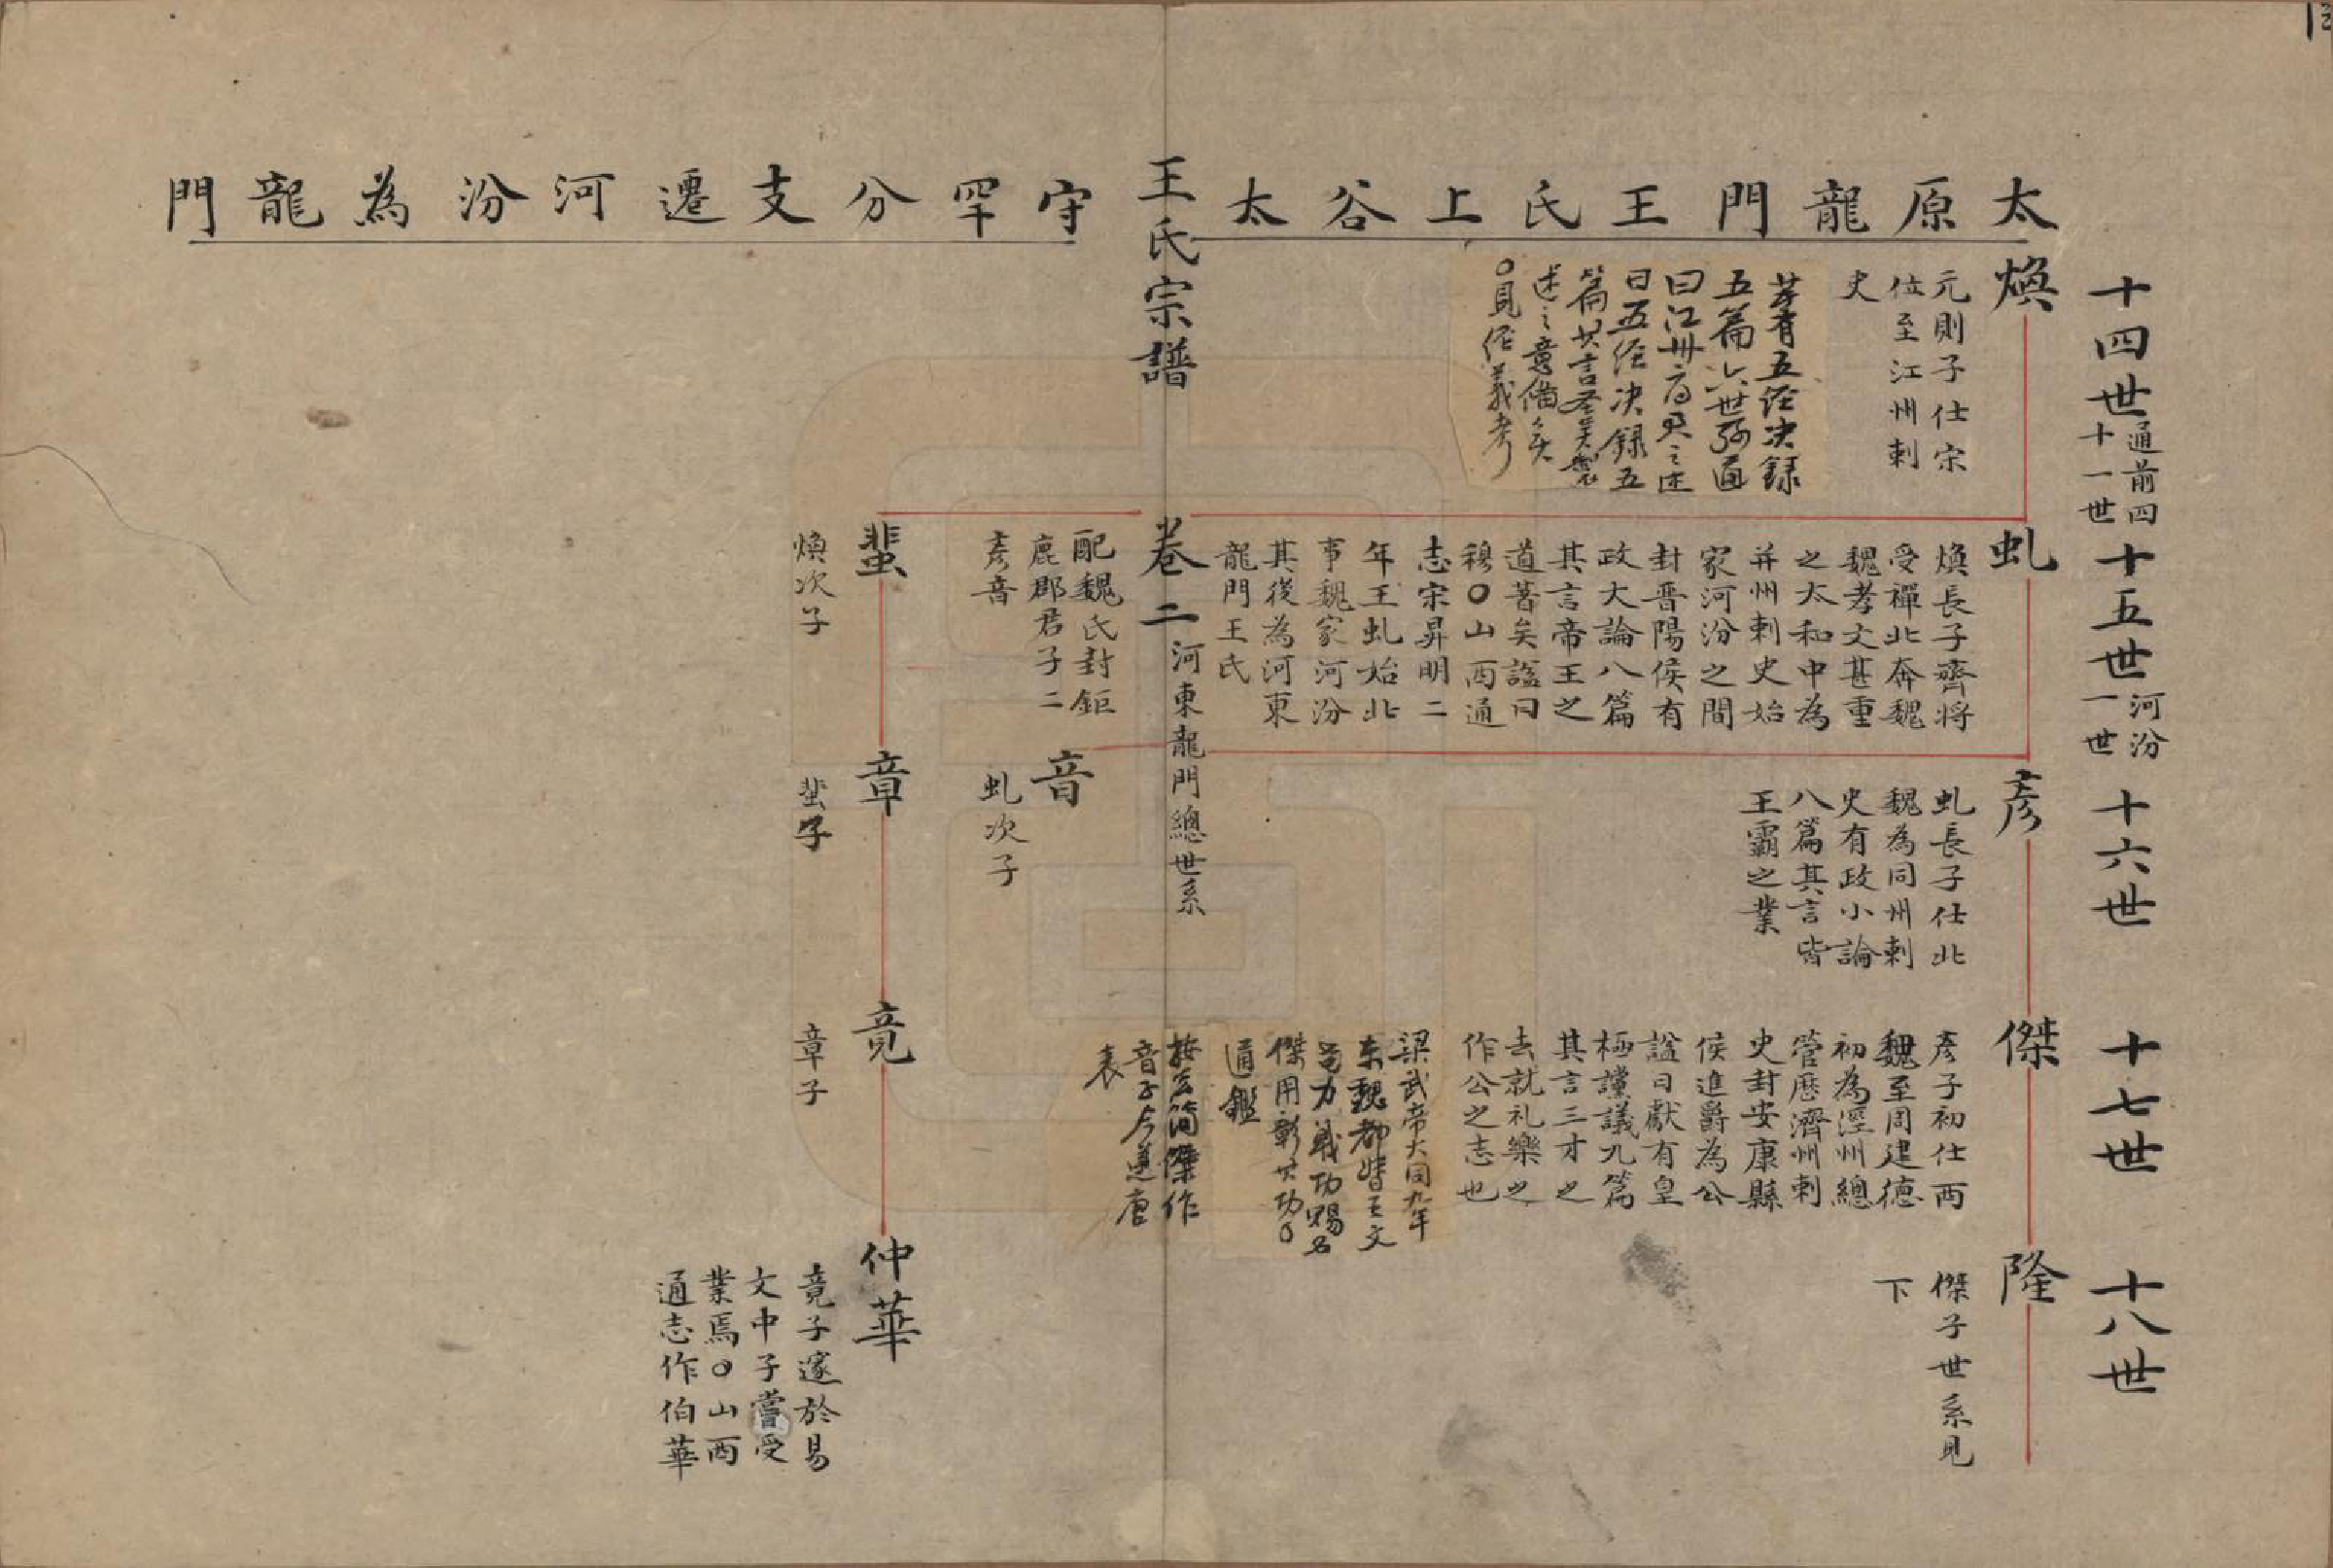 太原龍門王氏上谷太
守罕分支遷河汾為龍門
王氏宗譜
卷二
河東龍門總世系
十四世
通前四
十一世
十五世
河汾
一世
十六世
十七世
十八世
煥
元則子仕宋
位至江州刺
史
著有五经决録
五篇六世孫通
曰江州府君之述
曰五经决録五
篇其言圣美製
述之意備矣
○見经義考
虬
煥長子齊將
受禪北奔魏
魏孝文甚重
之太和中為
并州刺史始
家河汾之間
封晋陽侯有
政大論八篇
其言帝王之
道著矣諡曰
穆○山西通
志宋昇明二
年王虬始北
事魏家河汾
其後為河東
龍門王氏
配魏氏封鉅
鹿郡君子二
彥音
彥
虬長子仕北
魏為同州刺
史有政小論
八篇其言皆
王霸之業
傑
彥子初仕西
魏至周建德
初為涇州總
管歷濟州刺
史封安康縣
侯進爵為公
諡曰獻有皇
極讜議九篇
其言三才之
去就礼樂之
作公之志也
梁武帝大同九年
东魏都督王文
力戰功賜名
傑用彰其功○
通鑑
按 簡傑作
音子今遵唐
表
隆
傑子世系見
下
音
虬次子
蜚
煥次子
章
蜚子
竟
章子
仲華
竟子邃於易
文中子嘗受
業焉○山西
通志作伯華